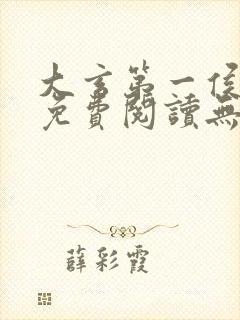 大言第一侯
免費閱讀無
薛彩霞